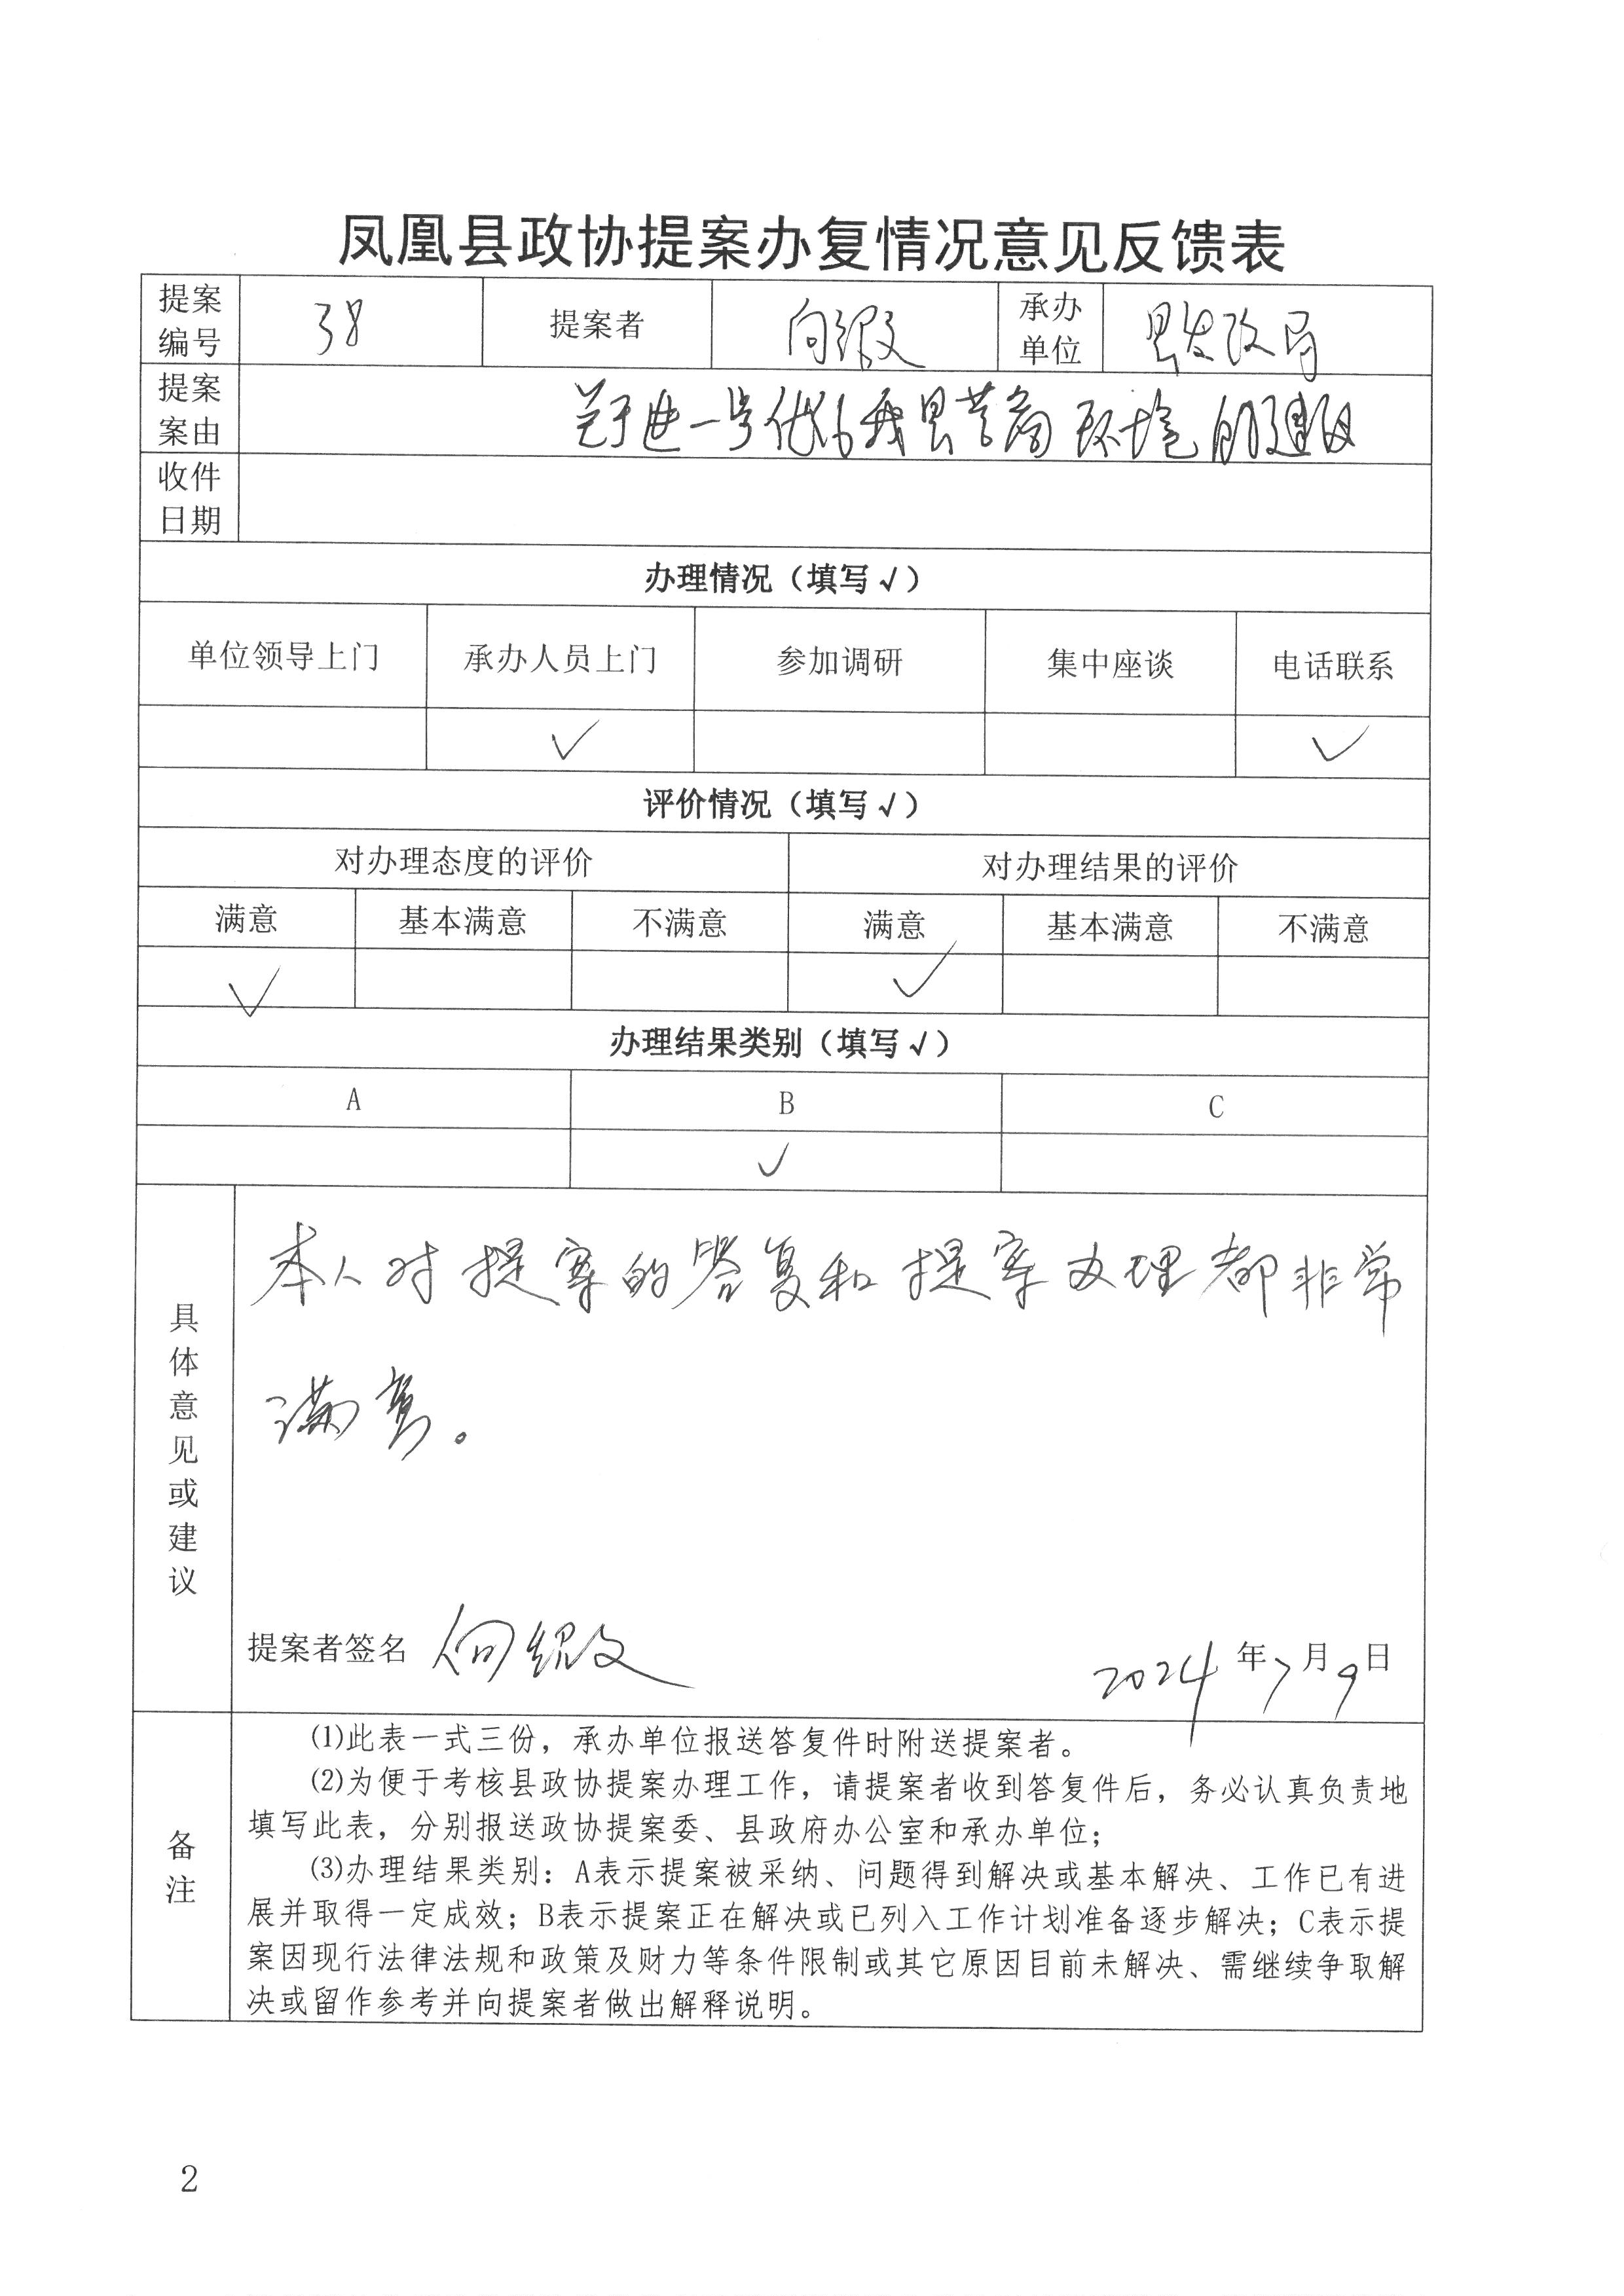 凤凰县政协提案办复情况意见反馈表
提案编号 38 提案者 向 文 承办单位 县发改局
提案案由 关于进一步优化我县营商环境的建议
收件日期
办理情况（填写√）
单位领导上门 承办人员上门 参加调研 集中座谈 电话联系
√ √
评价情况（填写√）
对办理态度的评价 对办理结果的评价
满意 基本满意 不满意 满意 基本满意 不满意
√ √
办理结果类别（填写√）
A B C
√
具体意见或建议
本人对提案的答复和提案办理都非常
满意。
提案者签名 向 文 2024年7月9日
备注
⑴此表一式三份，承办单位报送答复件时附送提案者。
⑵为便于考核县政协提案办理工作，请提案者收到答复件后，务必认真负责地
填写此表，分别报送政协提案委、县政府办公室和承办单位；
⑶办理结果类别：A表示提案被采纳、问题得到解决或基本解决、工作已有进
展并取得一定成效；B表示提案正在解决或已列入工作计划准备逐步解决；C表示提
案因现行法律法规和政策及财力等条件限制或其它原因目前未解决、需继续争取解
决或留作参考并向提案者做出解释说明。
2